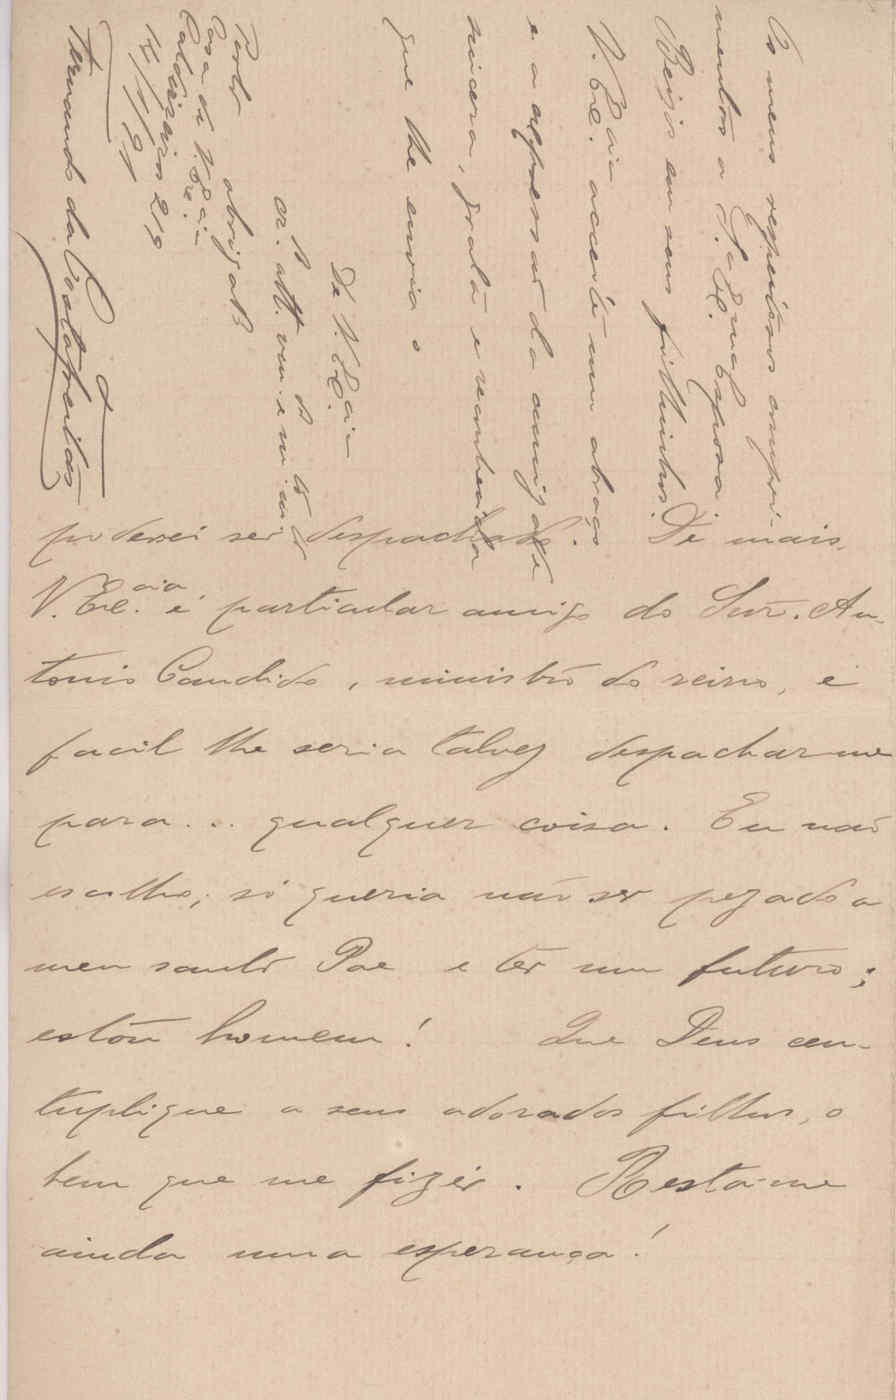 poderei ser despachado. De mais,
V. Exc.ᵃⁱᵃ é particular amigo do Snr. An-
tonio Candido, ministro do reino, e
facil lhe seria talvez despachar-me
para... qualquer coisa. Eu não
escolho; só queria não ser pezado a
meu santo Pae e ter um futuro;
estou homem! Que Deus cen-
tuplique a seus adorados filhos, o
bem que me fizér. Resta-me
ainda uma esperança!
Os meus respeitosos cumpri-
mentos a S. Exc. Esposa.
Beijos em seus filhinhos.
V. Exc.ᵃⁱᵃ acceite um abraço
e a expressão da amizade
sincera, grata e reconhecida
que lhe envia o
De V. Exc.ᵃⁱᵃ
am.º att.º ven.
cr.
obrigado
Porto
Casa de V. Exc.ᵃⁱᵃ
Caldeireiros 219
Fernando da Costa Freitas